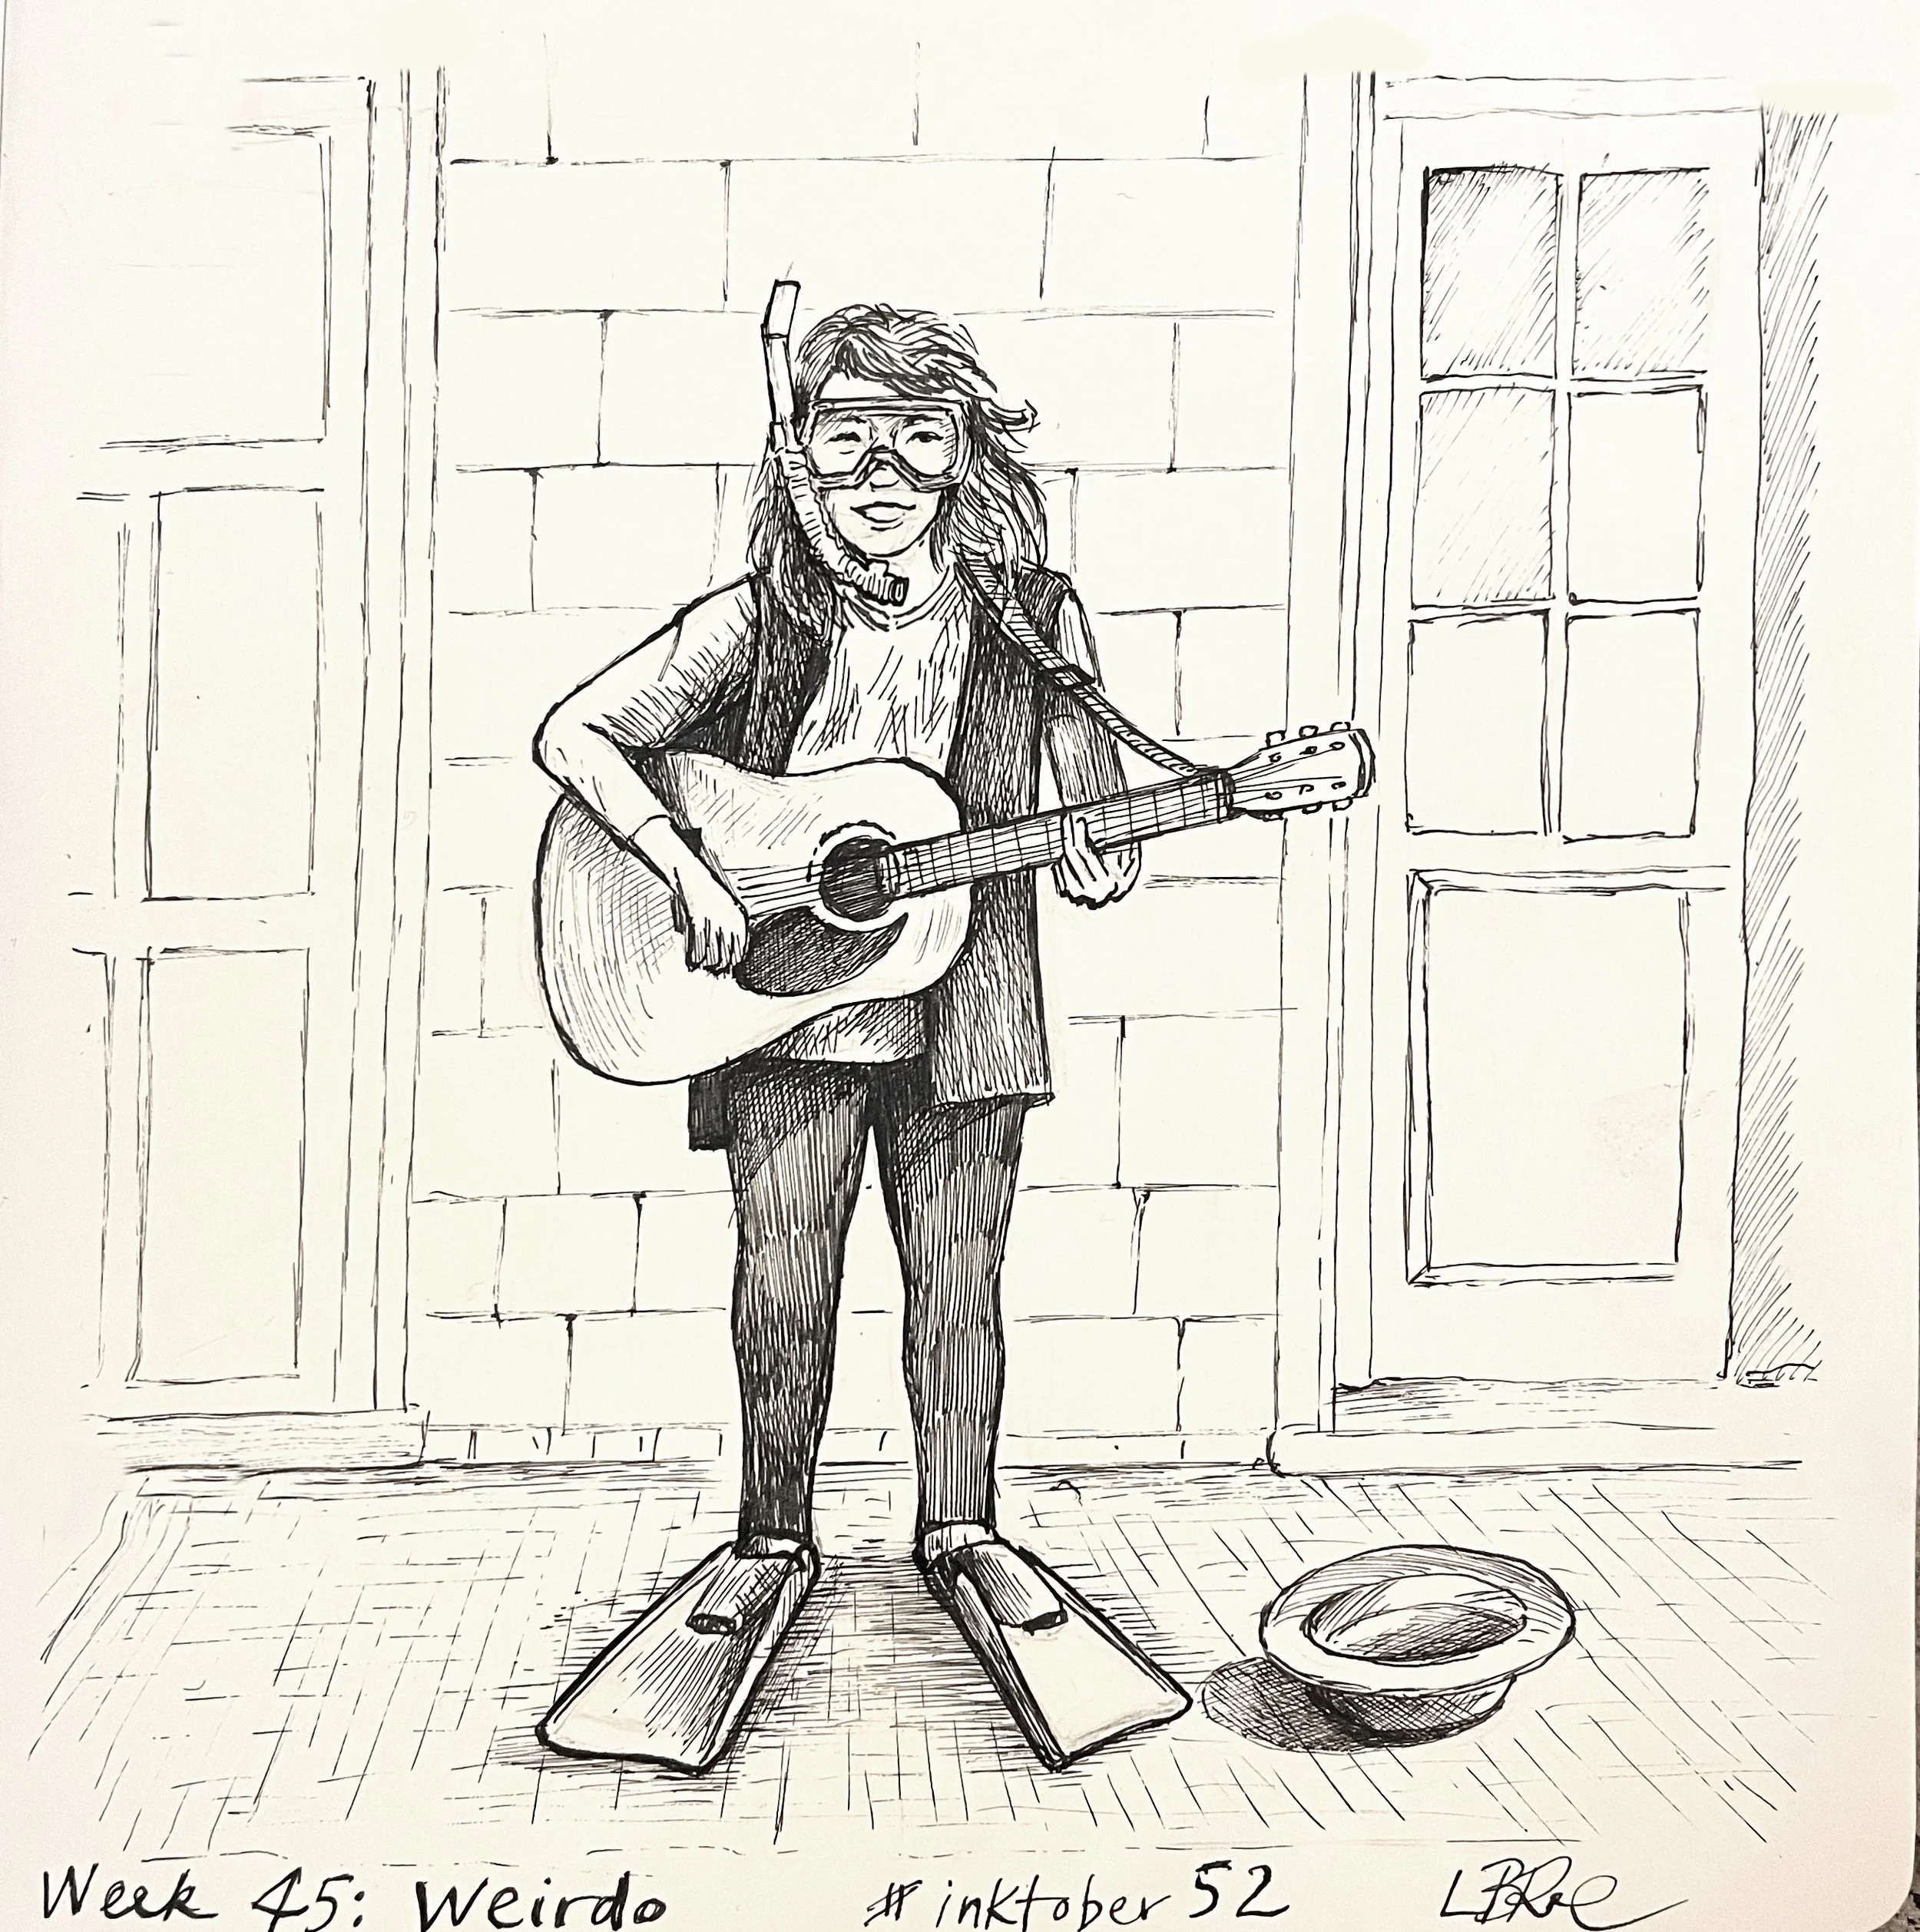 Week 45: Weirdo #inktober52